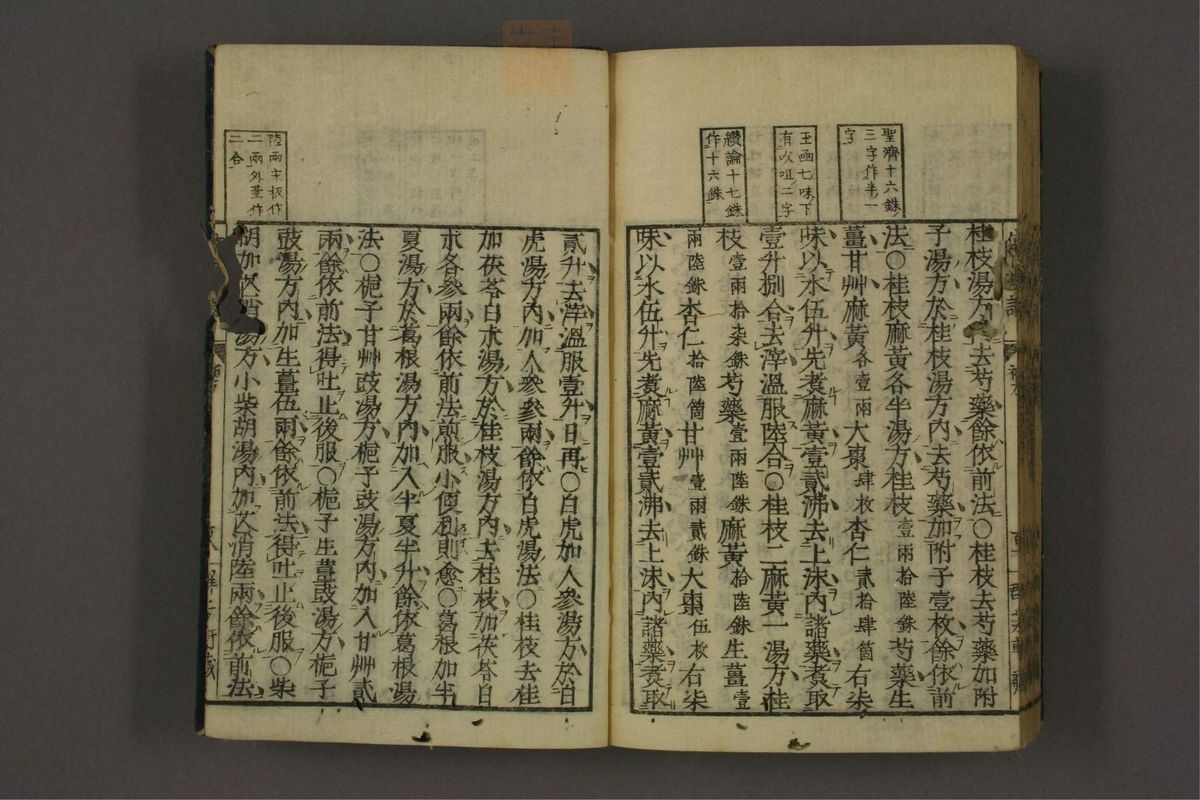 聖濟十六銖
三字作半一
字
王函七味下
有㕮咀二字
纘論十七銖
作十六銖
桂枝湯方去芍藥餘依前法〇桂枝去芍藥加附
子湯方於桂枝湯方內去芍藥加附子壹枚餘依前
法〇桂枝麻黃各半湯方桂枝壹兩拾陸銖芍藥生
薑甘艸麻黃各壹兩大棗肆枚杏仁貳拾肆箇右柒
味以水伍升先煑麻黃壹貳沸去上沫內諸藥煑取
壹升捌合去滓溫服陸合〇桂枝二麻黃一湯方桂
枝壹兩拾柒銖芍藥壹兩陸銖麻黃拾陸銖生薑壹
兩陸銖杏仁拾陸箇甘艸壹兩貳銖大棗伍枚右柒
味以水伍升先煑麻黃壹貳沸去上沫內諸藥煑取
陸兩宋板作
二兩外臺作
二合
貳升去滓溫服壹升日再〇白虎加人參湯方於白
虎湯方內加人參參兩餘依白虎湯法〇桂枝去桂
加茯苓白朮湯方於桂枝湯方內去桂枝加茯苓白
朮各參兩餘依前法煎服小便利則愈〇葛根加半
夏湯方於葛根湯方內加入半夏半升餘依葛根湯
法〇梔子甘艸豉湯方梔子豉湯方內加入甘艸貳
兩餘依前法得吐止後服〇梔子生薑豉湯方梔子
豉湯方內加生薑伍兩餘依前法得吐止後服〇柴
胡加芒消湯方小柴胡湯內加芒消陸兩餘依前法